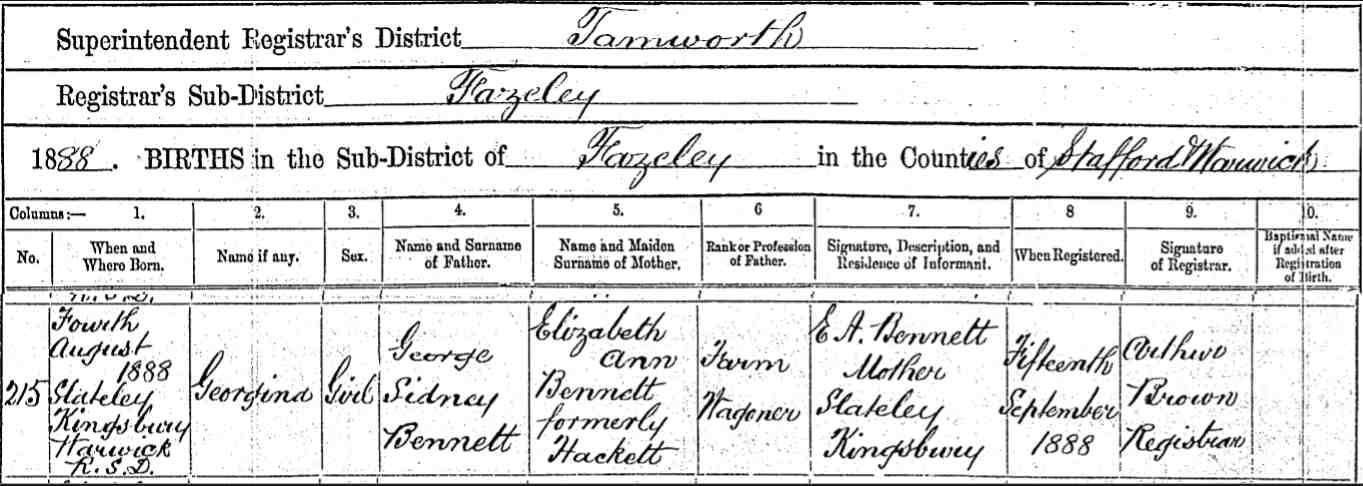 Superintendent Registrar's District Tamworth
Registrar's Sub-District Fazeley
1888. BIRTHS in the Sub-District of Fazeley in the Counties of Stafford & Warwick
Columns:— 1. 2. 3. 4. 5. 6 7. 8 9. 10.
No. When and Where Born. Name if any. Sex. Name and Surname of Father. Name and Maiden Surname of Mother. Rank or Profession of Father. Signature, Description, and Residence of Informant. When Registered. Signature of Registrar. Baptismal Name if added after Registration of Birth.
215
Fourth
August
1888
Slateley
Kingsbury
Warwick
R.S.D.
Georgina
Girl
George
Sidney
Bennett
Elizabeth
Ann
Bennett
formerly
Hackett
Farm
Wagoner
E A. Bennett
Mother
Slateley
Kingsbury
Fifteenth
September
1888
Arthur
Brown
Registrar